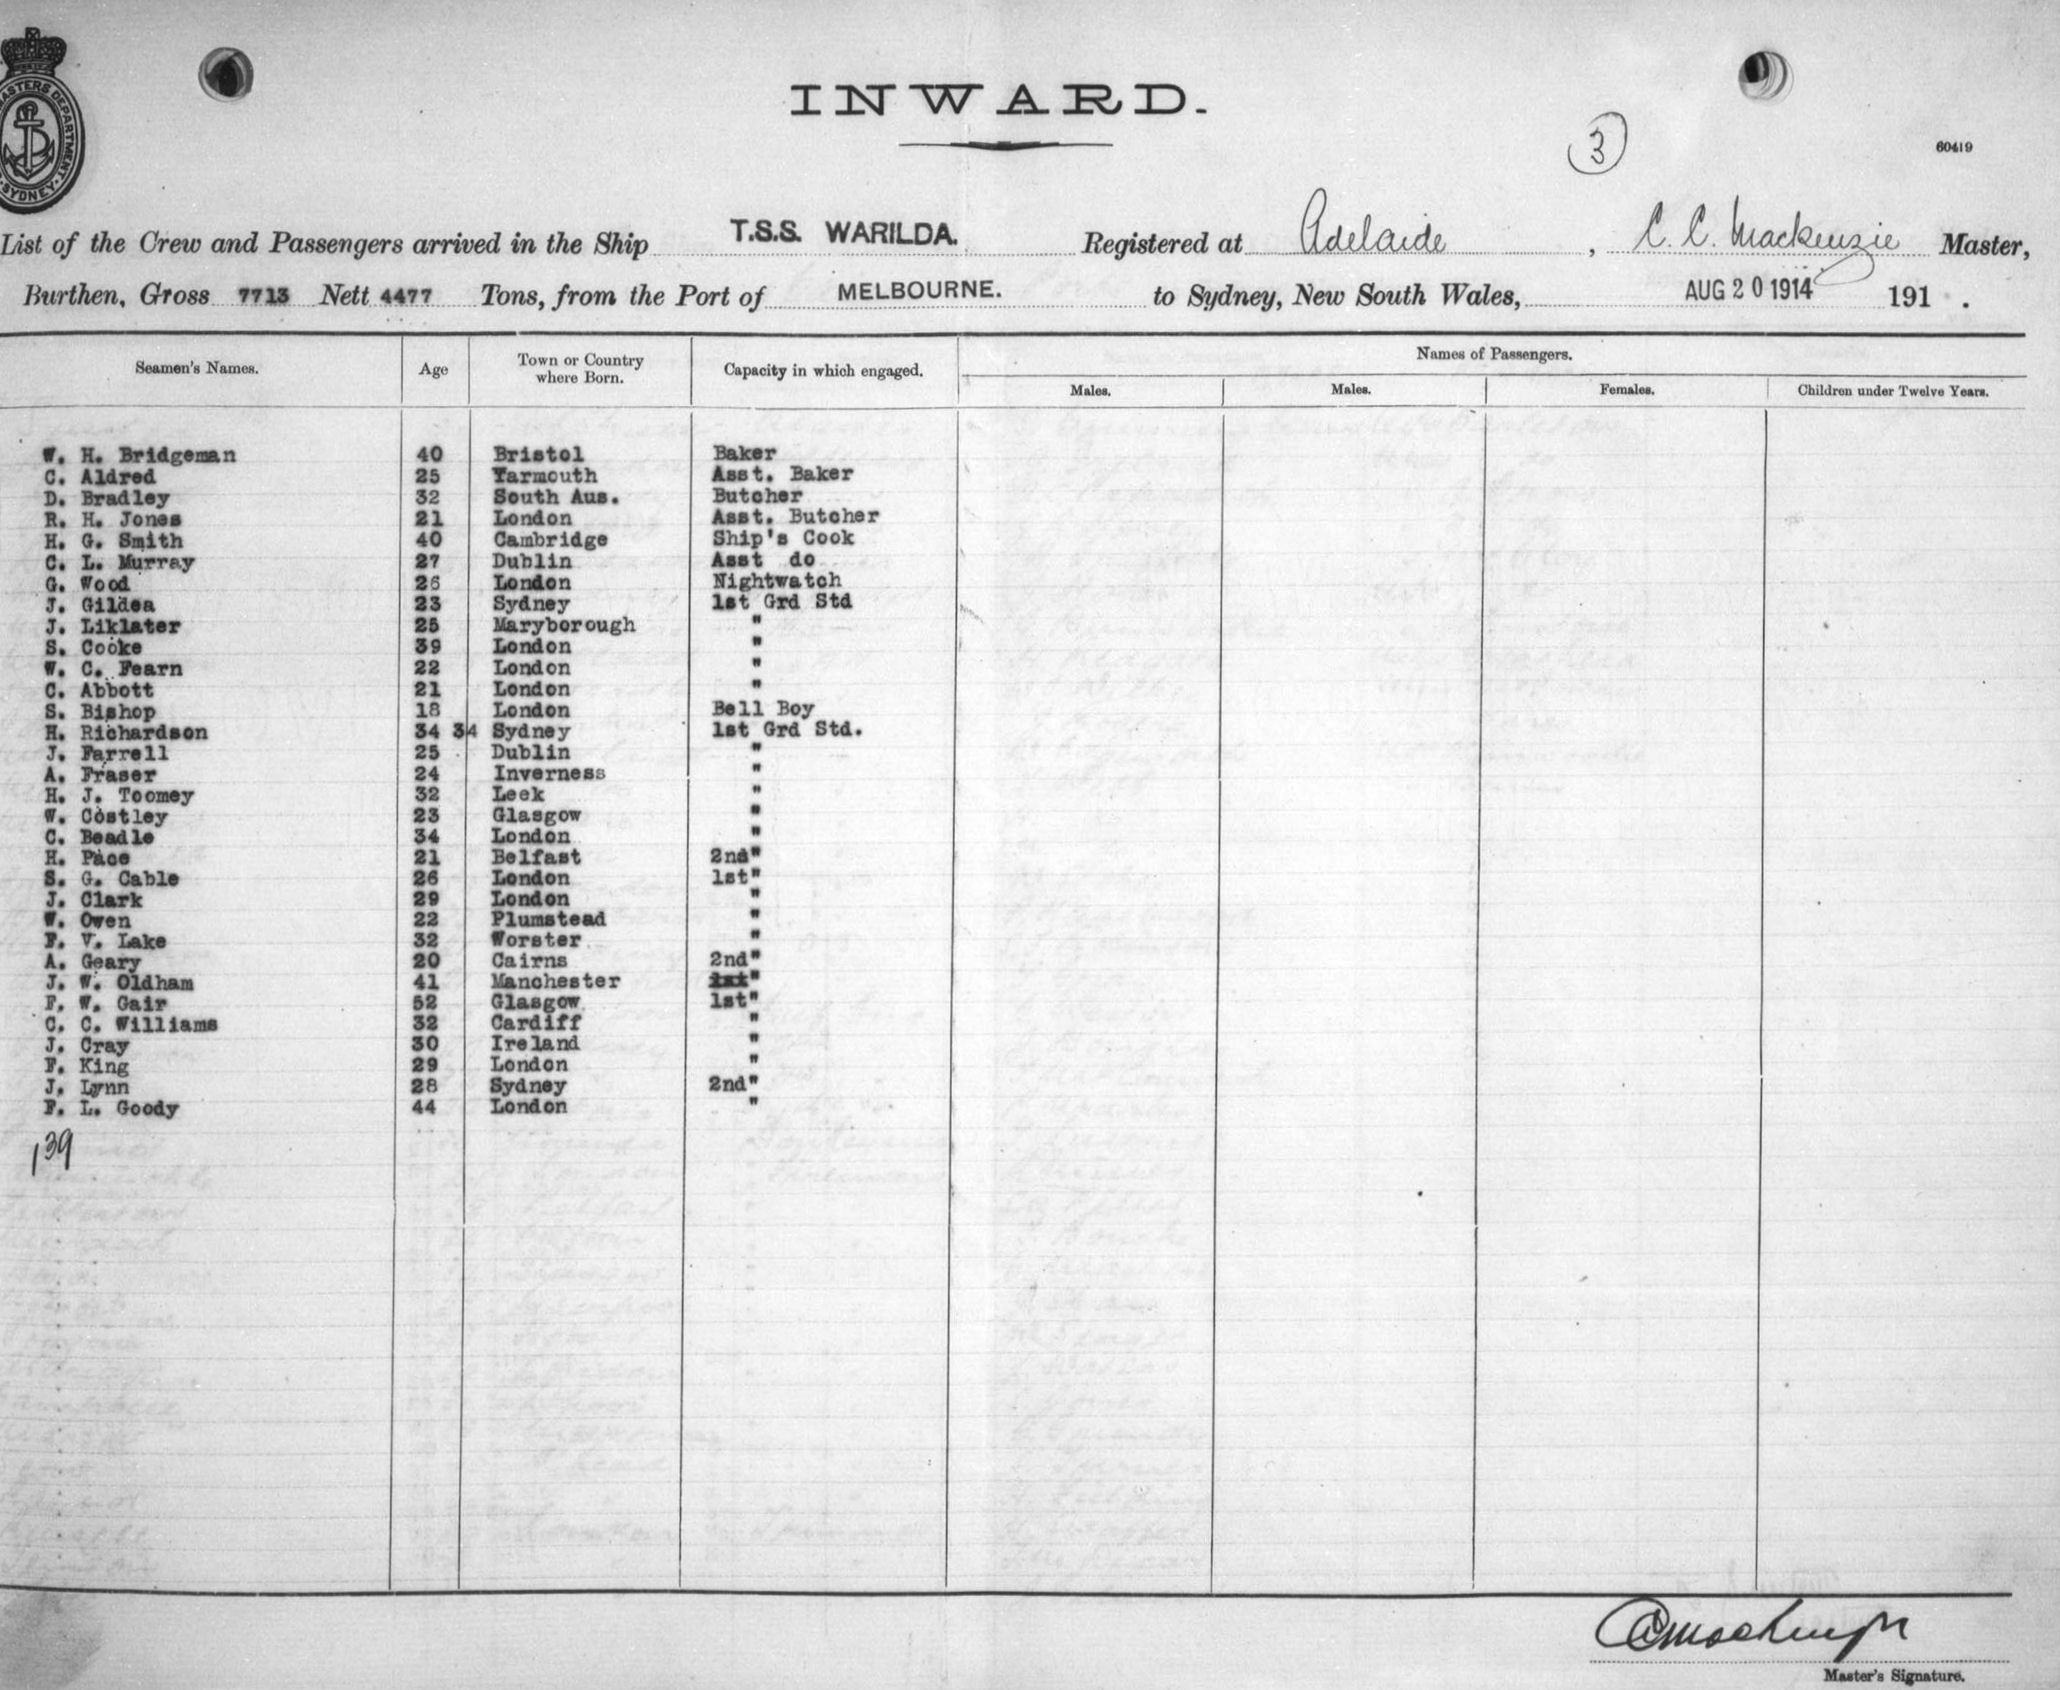 MASTERS DEPARTMENT
SYDNEY
INWARD.
3
60419
List of the Crew and Passengers arrived in the Ship T.S.S. WARILDA. Registered at Adelaide, C. C. Mackenzie Master,
Burthen, Gross 7713 Nett 4477 Tons, from the Port of MELBOURNE. to Sydney, New South Wales, AUG 20 1914 191 .
Seamen's Names. Age Town or Country where Born. Capacity in which engaged. Names of Passengers.
Males. Males. Females. Children under Twelve Years.
W. H. Bridgeman 40 Bristol Baker
C. Aldred 25 Yarmouth Asst. Baker
D. Bradley 32 South Aus. Butcher
R. H. Jones 21 London Asst. Butcher
H. G. Smith 40 Cambridge Ship's Cook
C. L. Murray 27 Dublin Asst do
G. Wood 26 London Nightwatch
J. Gildea 23 Sydney 1st Grd Std
J. Liklater 25 Maryborough "
S. Cooke 39 London "
W. C. Fearn 22 London "
C. Abbott 21 London "
S. Bishop 18 London Bell Boy
H. Richardson 34 34 Sydney 1st Grd Std.
J. Farrell 25 Dublin "
A. Fraser 24 Inverness "
H. J. Toomey 32 Leek "
W. Costley 23 Glasgow "
C. Beadle 34 London "
H. Pace 21 Belfast 2nd"
S. G. Cable 26 London 1st"
J. Clark 29 London "
W. Owen 22 Plumstead "
F. V. Lake 32 Worster "
A. Geary 20 Cairns 2nd"
J. W. Oldham 41 Manchester "
F. W. Gair 52 Glasgow 1st"
C. C. Williams 32 Cardiff "
J. Cray 30 Ireland "
F. King 29 London "
J. Lynn 28 Sydney 2nd"
F. L. Goody 44 London "
139
Master's Signature.